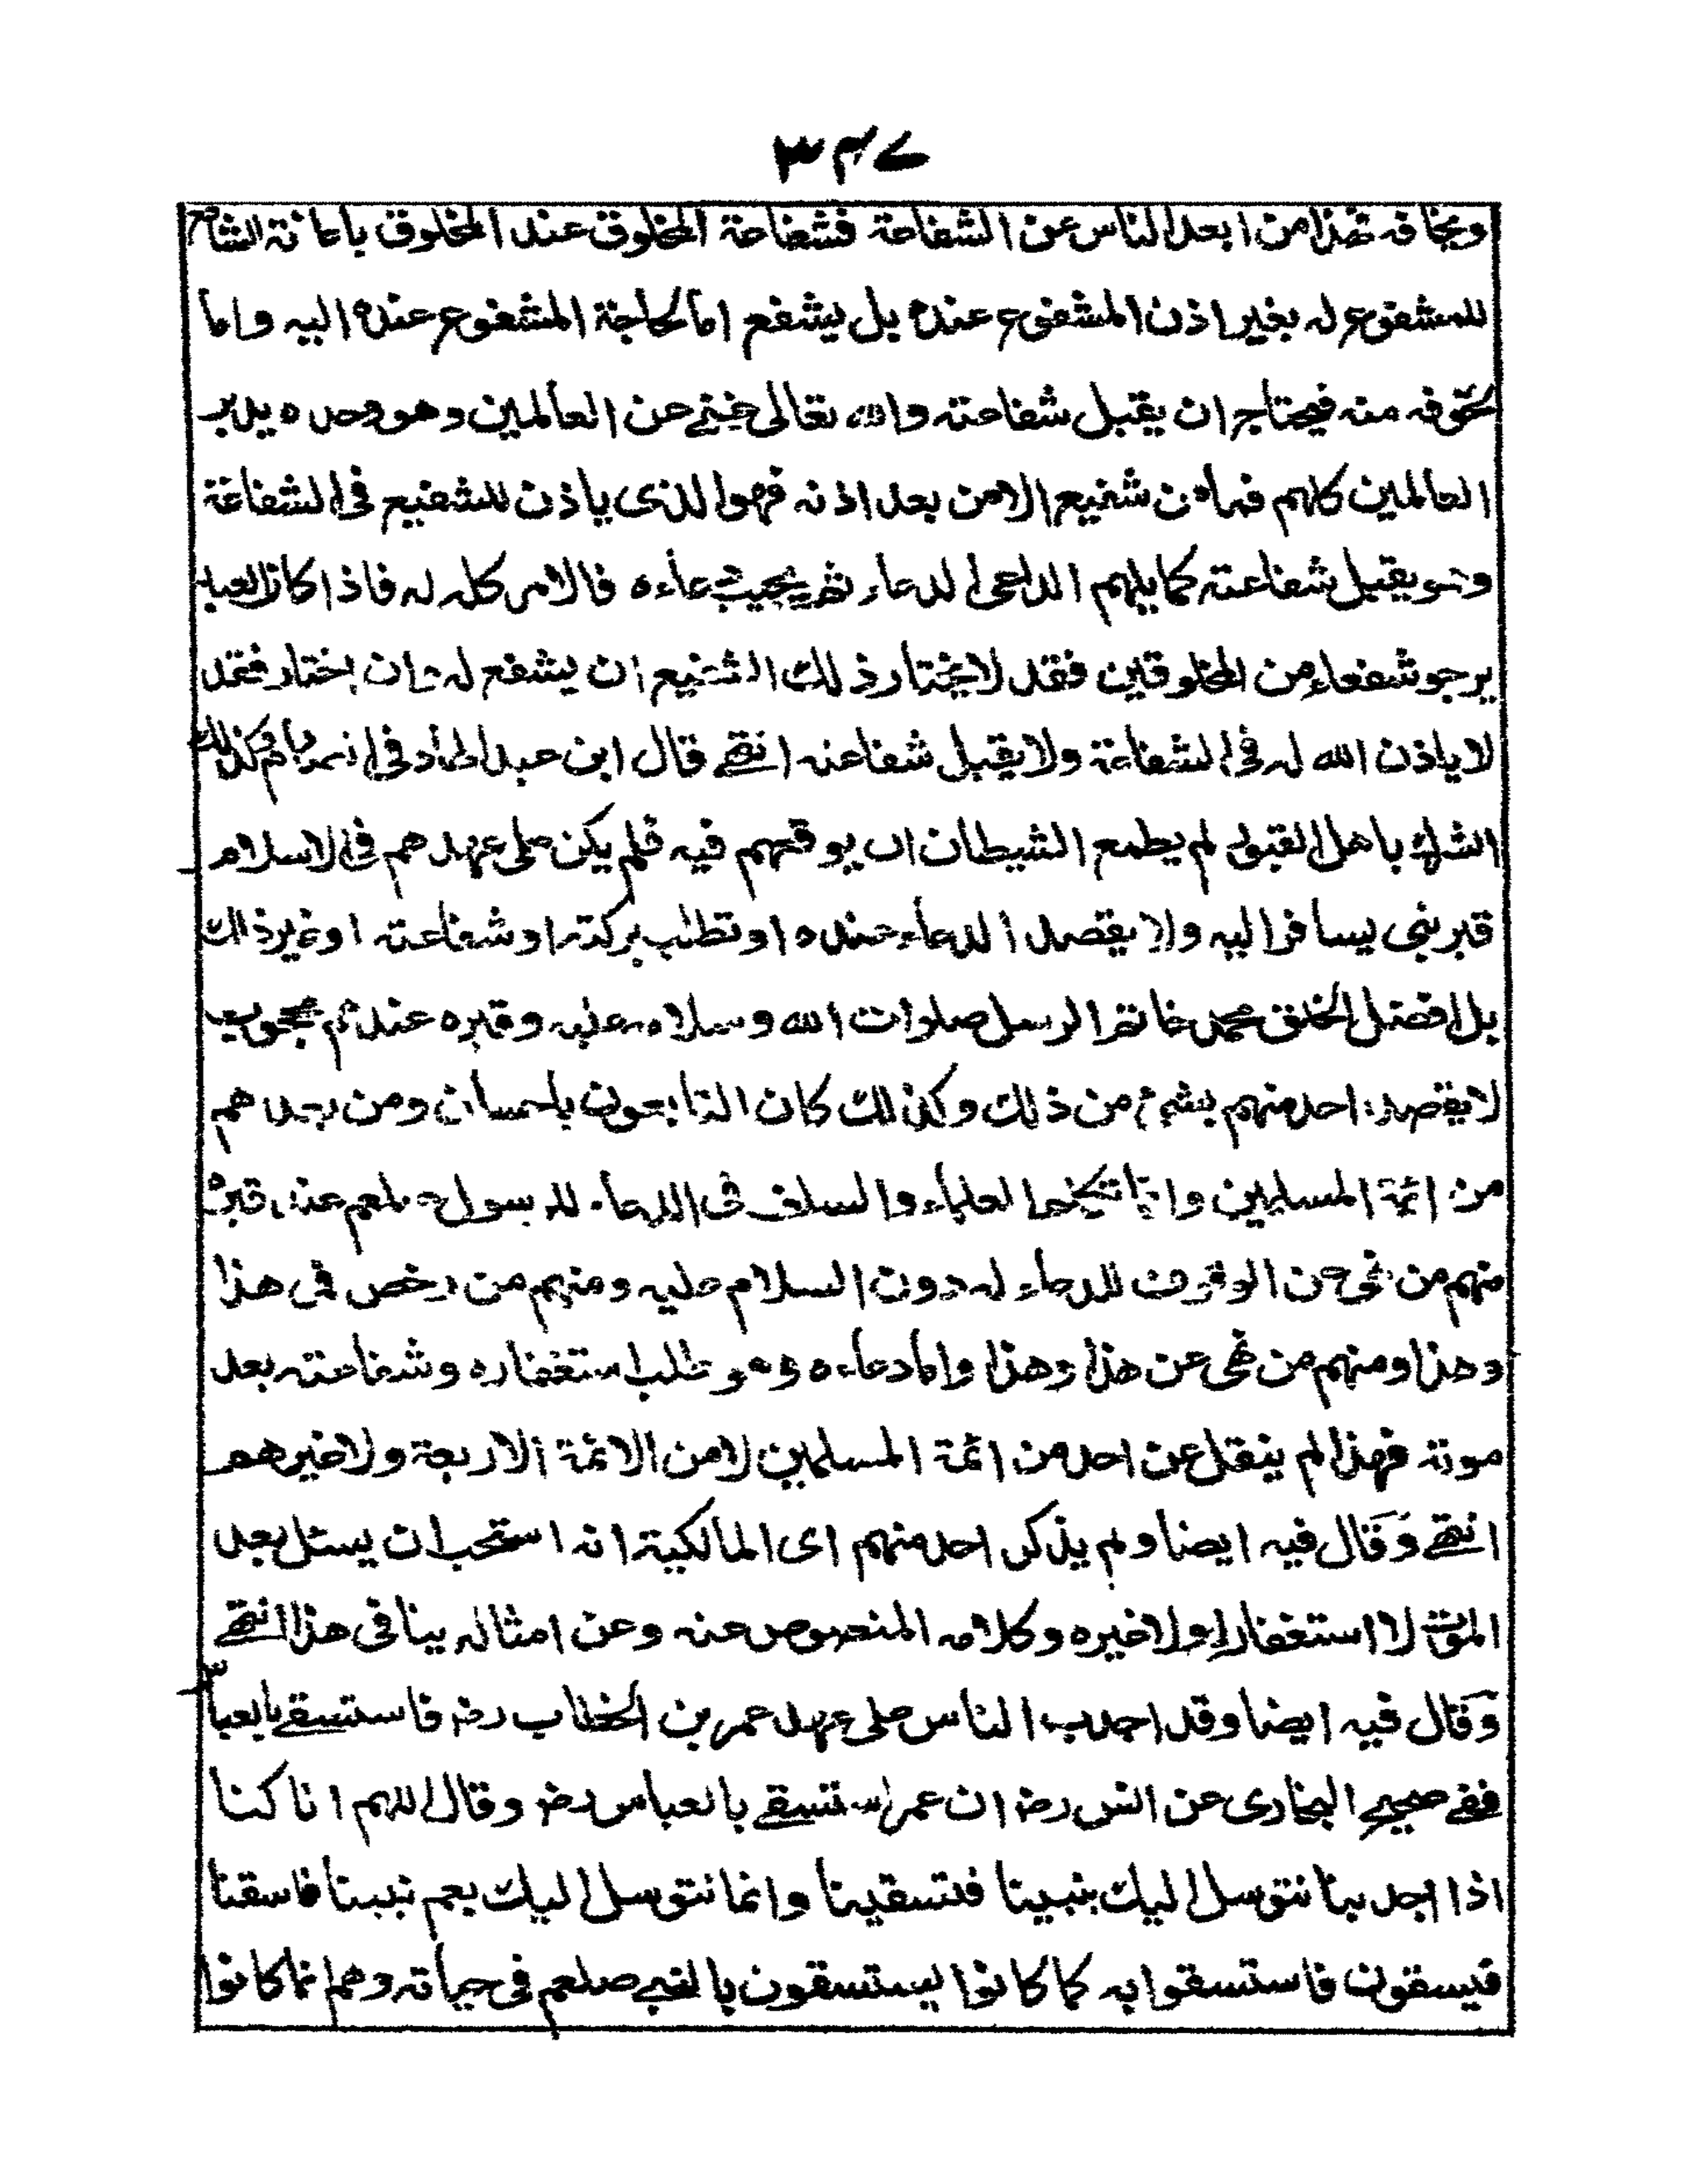 ٣٤٧
ويخافه فهذا من ابعد الناس عن الشفاعة فشفاعة المخلوق عند المخلوق باعانة الشافع
للمشفوع له بغير اذن المشفوع عنده بل يشفع اما لحاجة المشفوع عنده اليه واما
لخوفه منه فيحتاج ان يقبل شفاعته والله تعالى غنى عن العالمين وهو وحده يدبر
العالمين كلهم فما من شفيع الا من بعد اذنه فهو الذى ياذن للشفيع فى الشفاعة
وهو يقبل شفاعته كما يلهم الداعى الدعاء ثم يجيب دعاءه فالامر كله له فاذا كان العبد
يرجو شفعاء من المخلوقين فقد لا يختار ذلك الشفيع ان يشفع له وان اختار فقد
لا ياذن الله له فى الشفاعة ولا يقبل شفاعته انتهى قال ابن عبد الهاد فى وكذلك
الشرك باهل القبور لم يطمع الشيطان ان يوقعهم فيه فلم يكن على عهدهم فى الاسلام
قبر نبى يسافر اليه ولا يقصد الدعاء عنده او تطلب بركته او شفاعته او غير ذلك
بل افضل الخلق محمد خاتم الرسل صلوات الله وسلامه عليه وقبره عندهم محجوب
لا يقصده احد منهم بشئ من ذلك وكذلك كان التابعون باحسان ومن بعدهم
من ائمة المسلمين وانما تكلم العلماء والسلف فى الدعاء للرسول صلعم عند قبره
منهم من نهى عن الوقوف للدعاء له دون السلام عليه ومنهم من رخص فى هذا
وهذا ومنهم من نهى عن هذا وهذا واما دعاءه وهو طلب استغفاره وشفاعته بعد
موته فهذا لم ينقل عن احد من ائمة المسلمين لا من الائمة الاربعة ولا غيرهم
انتهى وقال فيه ايضا ولم يذكر احد منهم اى المالكية انه استحب ان يسئل بعد
الموت لا استغفارا ولا غيره وكلامه المنصوص عنه وعن امثاله ينافى هذا انتهى
وقال فيه ايضا وقد اجدب الناس على عهد عمر بن الخطاب رضـ فاستسقى بالعباس
ففى صحيح البخارى عن انس رضـ ان عمر استسقى بالعباس رضـ وقال اللهم انا كنا
اذا اجدبنا نتوسل اليك بنبينا فتسقينا وانما نتوسل اليك بعم نبينا فاسقنا
فيسقون فاستسقوا به كما كانوا يستسقون بالنبى صلعم فى حياته وهم انما كانوا